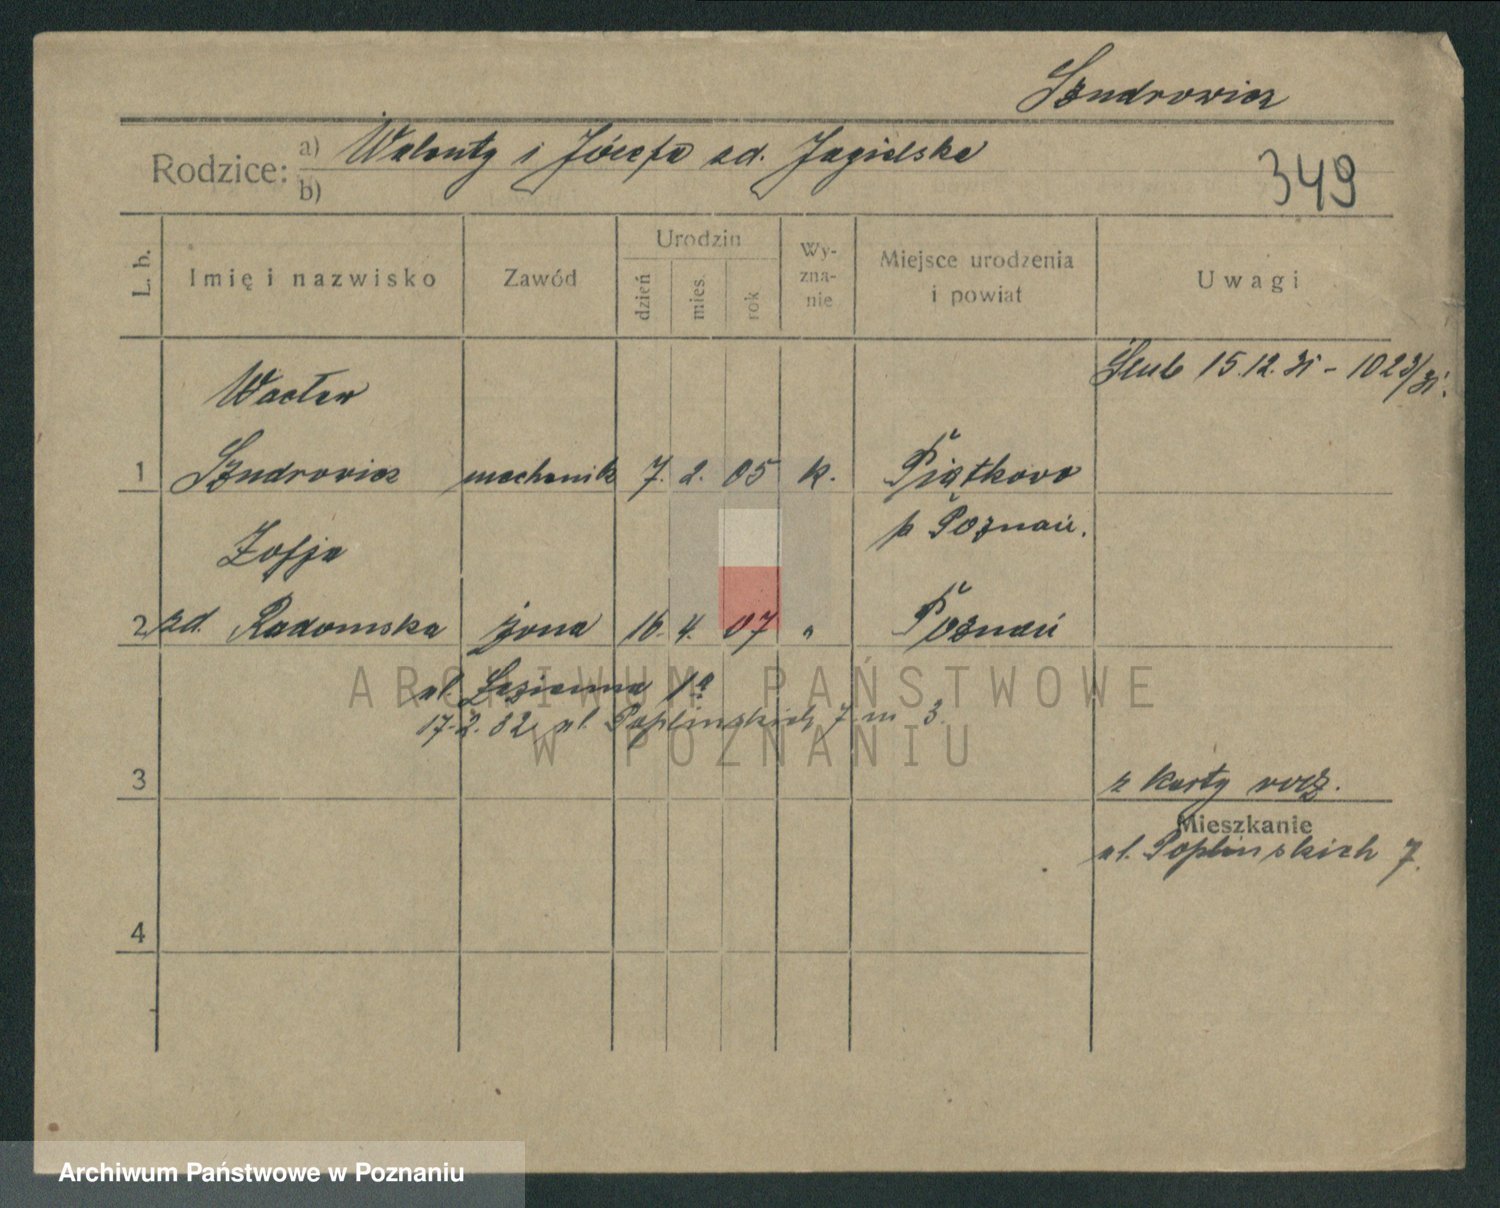 Szudrowicz
Rodzice: a) Walenty i Józefa zd. Jagielska
b)
349
L. b.
Imię i nazwisko
Zawód
Urodzin
dzień
mies.
rok
Wy-
zna-
nie
Miejsce urodzenia
i powiat
Uwagi
Ślub 15.12.31 - 1023/31.
Wacław
1 Szudrowicz mechanik 7. 2. 05 k. Piątkowo
p Poznań.
Zofja
2 zd. Radomska żona 16. 4. 07 " Poznań
ul. Łazienna 1a
17.2.32 ul. Poplińskich 7 m 3.
ARCHIWUM PAŃSTWOWE
W POZNANIU
3
z karty
Mieszkanie
ul. Poplińskich 7.
4
Archiwum Państwowe w Poznaniu